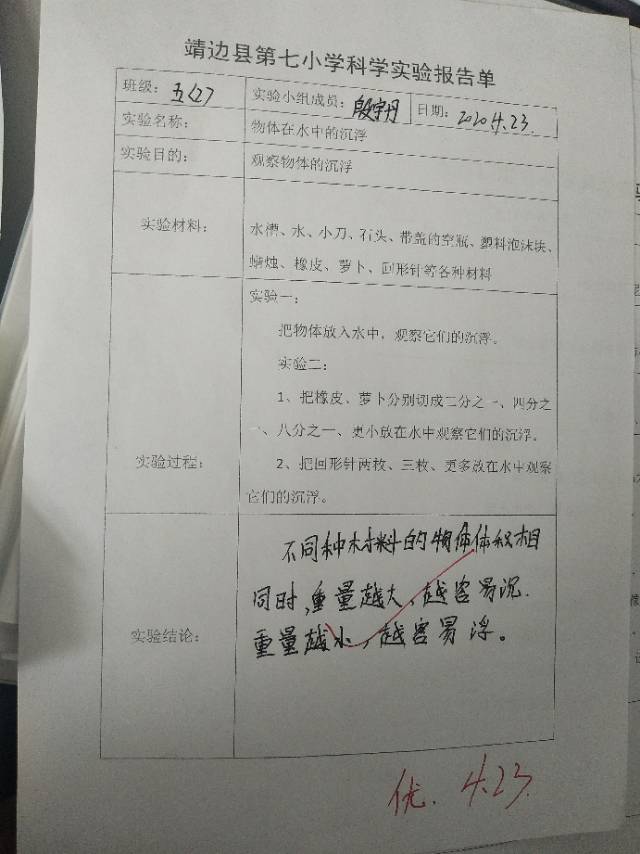 靖边县第七小学科学实验报告单
班级： 五(2) 实验小组成员： 段宇丹 日期： 2020 4.23.
实验名称： 物体在水中的沉浮
实验目的： 观察物体的沉浮
实验材料： 水槽、水、小刀、石头、带盖的空瓶、塑料泡沫块、
蜡烛、橡皮、萝卜、回形针等各种材料
实验一：
把物体放入水中，观察它们的沉浮。
实验二：
1、把橡皮、萝卜分别切成二分之一、四分之
一、八分之一、更小放在水中观察它们的沉浮。
实验过程： 2、把回形针两枚、三枚、更多放在水中观察
它们的沉浮。
不同种材料的物体体积相
同时,重量越大,越容易沉.
实验结论： 重量越小,越容易浮。
优. 4.23.